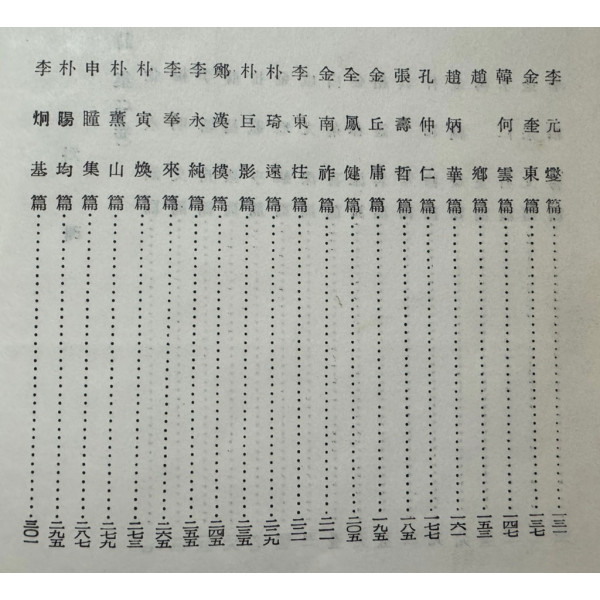 李元燮篇……………一三一
金奎東篇……………一三七
韓何雲篇……………一四七
趙鄕篇……………一五三
趙炳華篇……………一六一
孔仲仁篇……………一七七
張壽哲篇……………一八五
金丘庸篇……………一九五
全鳳健篇……………二〇五
金南祚篇……………二一一
李東柱篇……………二二一
朴琦遠篇……………二二九
朴巨影篇……………二三五
鄭漢模篇……………二四五
李永純篇……………二五五
李奉來篇……………二六五
朴寅煥篇……………二七三
朴薰山篇……………二七九
申瞳集篇……………二八七
朴暘均篇……………二九五
李炯基篇……………三〇一